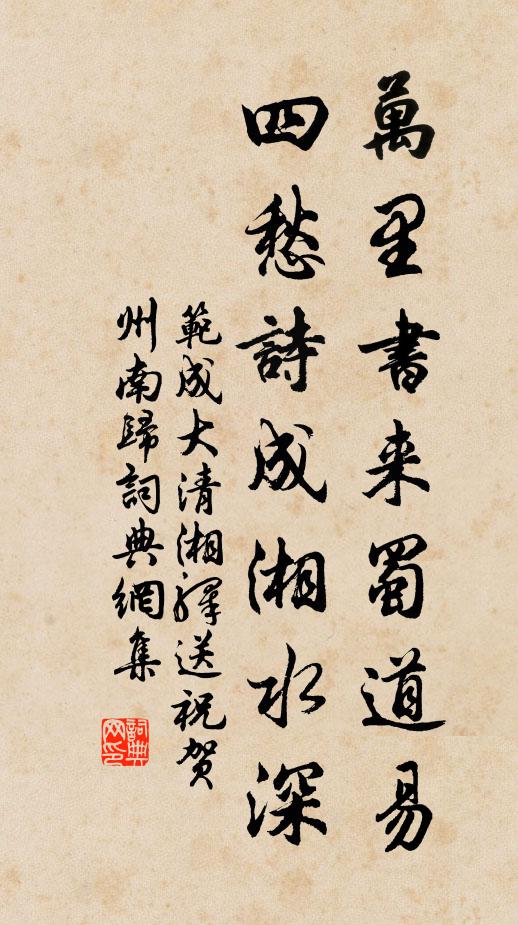 萬里書来蜀道易
四愁詩成湘水深
範成大清湘驛送祝賀
州南歸詞典網集
詞典
网印